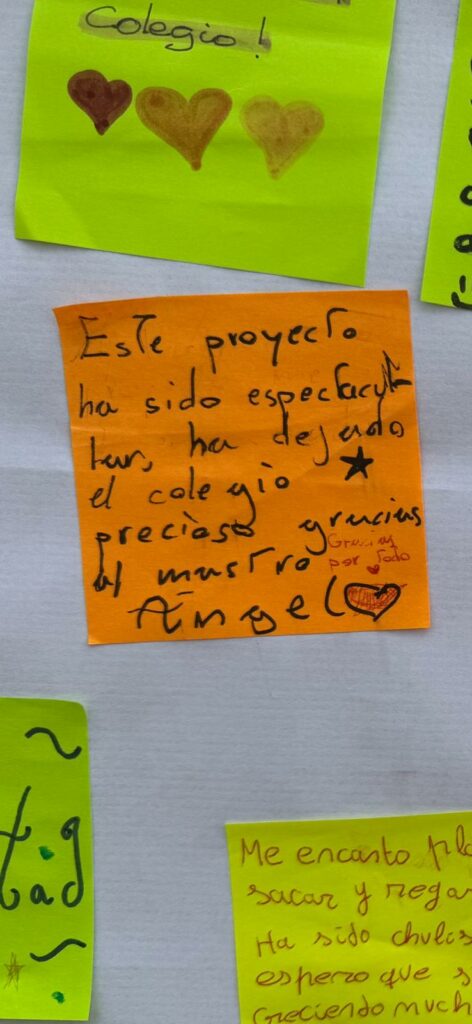 Colegio!
Este proyecto
ha sido espectacul
lar, ha dejado
el colegio
precioso gracias
al mastro
Angel
Gracias
por todo
tad
Me encanto pla
sacar y regar
Ha sido chulis
espero que s
creciendo much